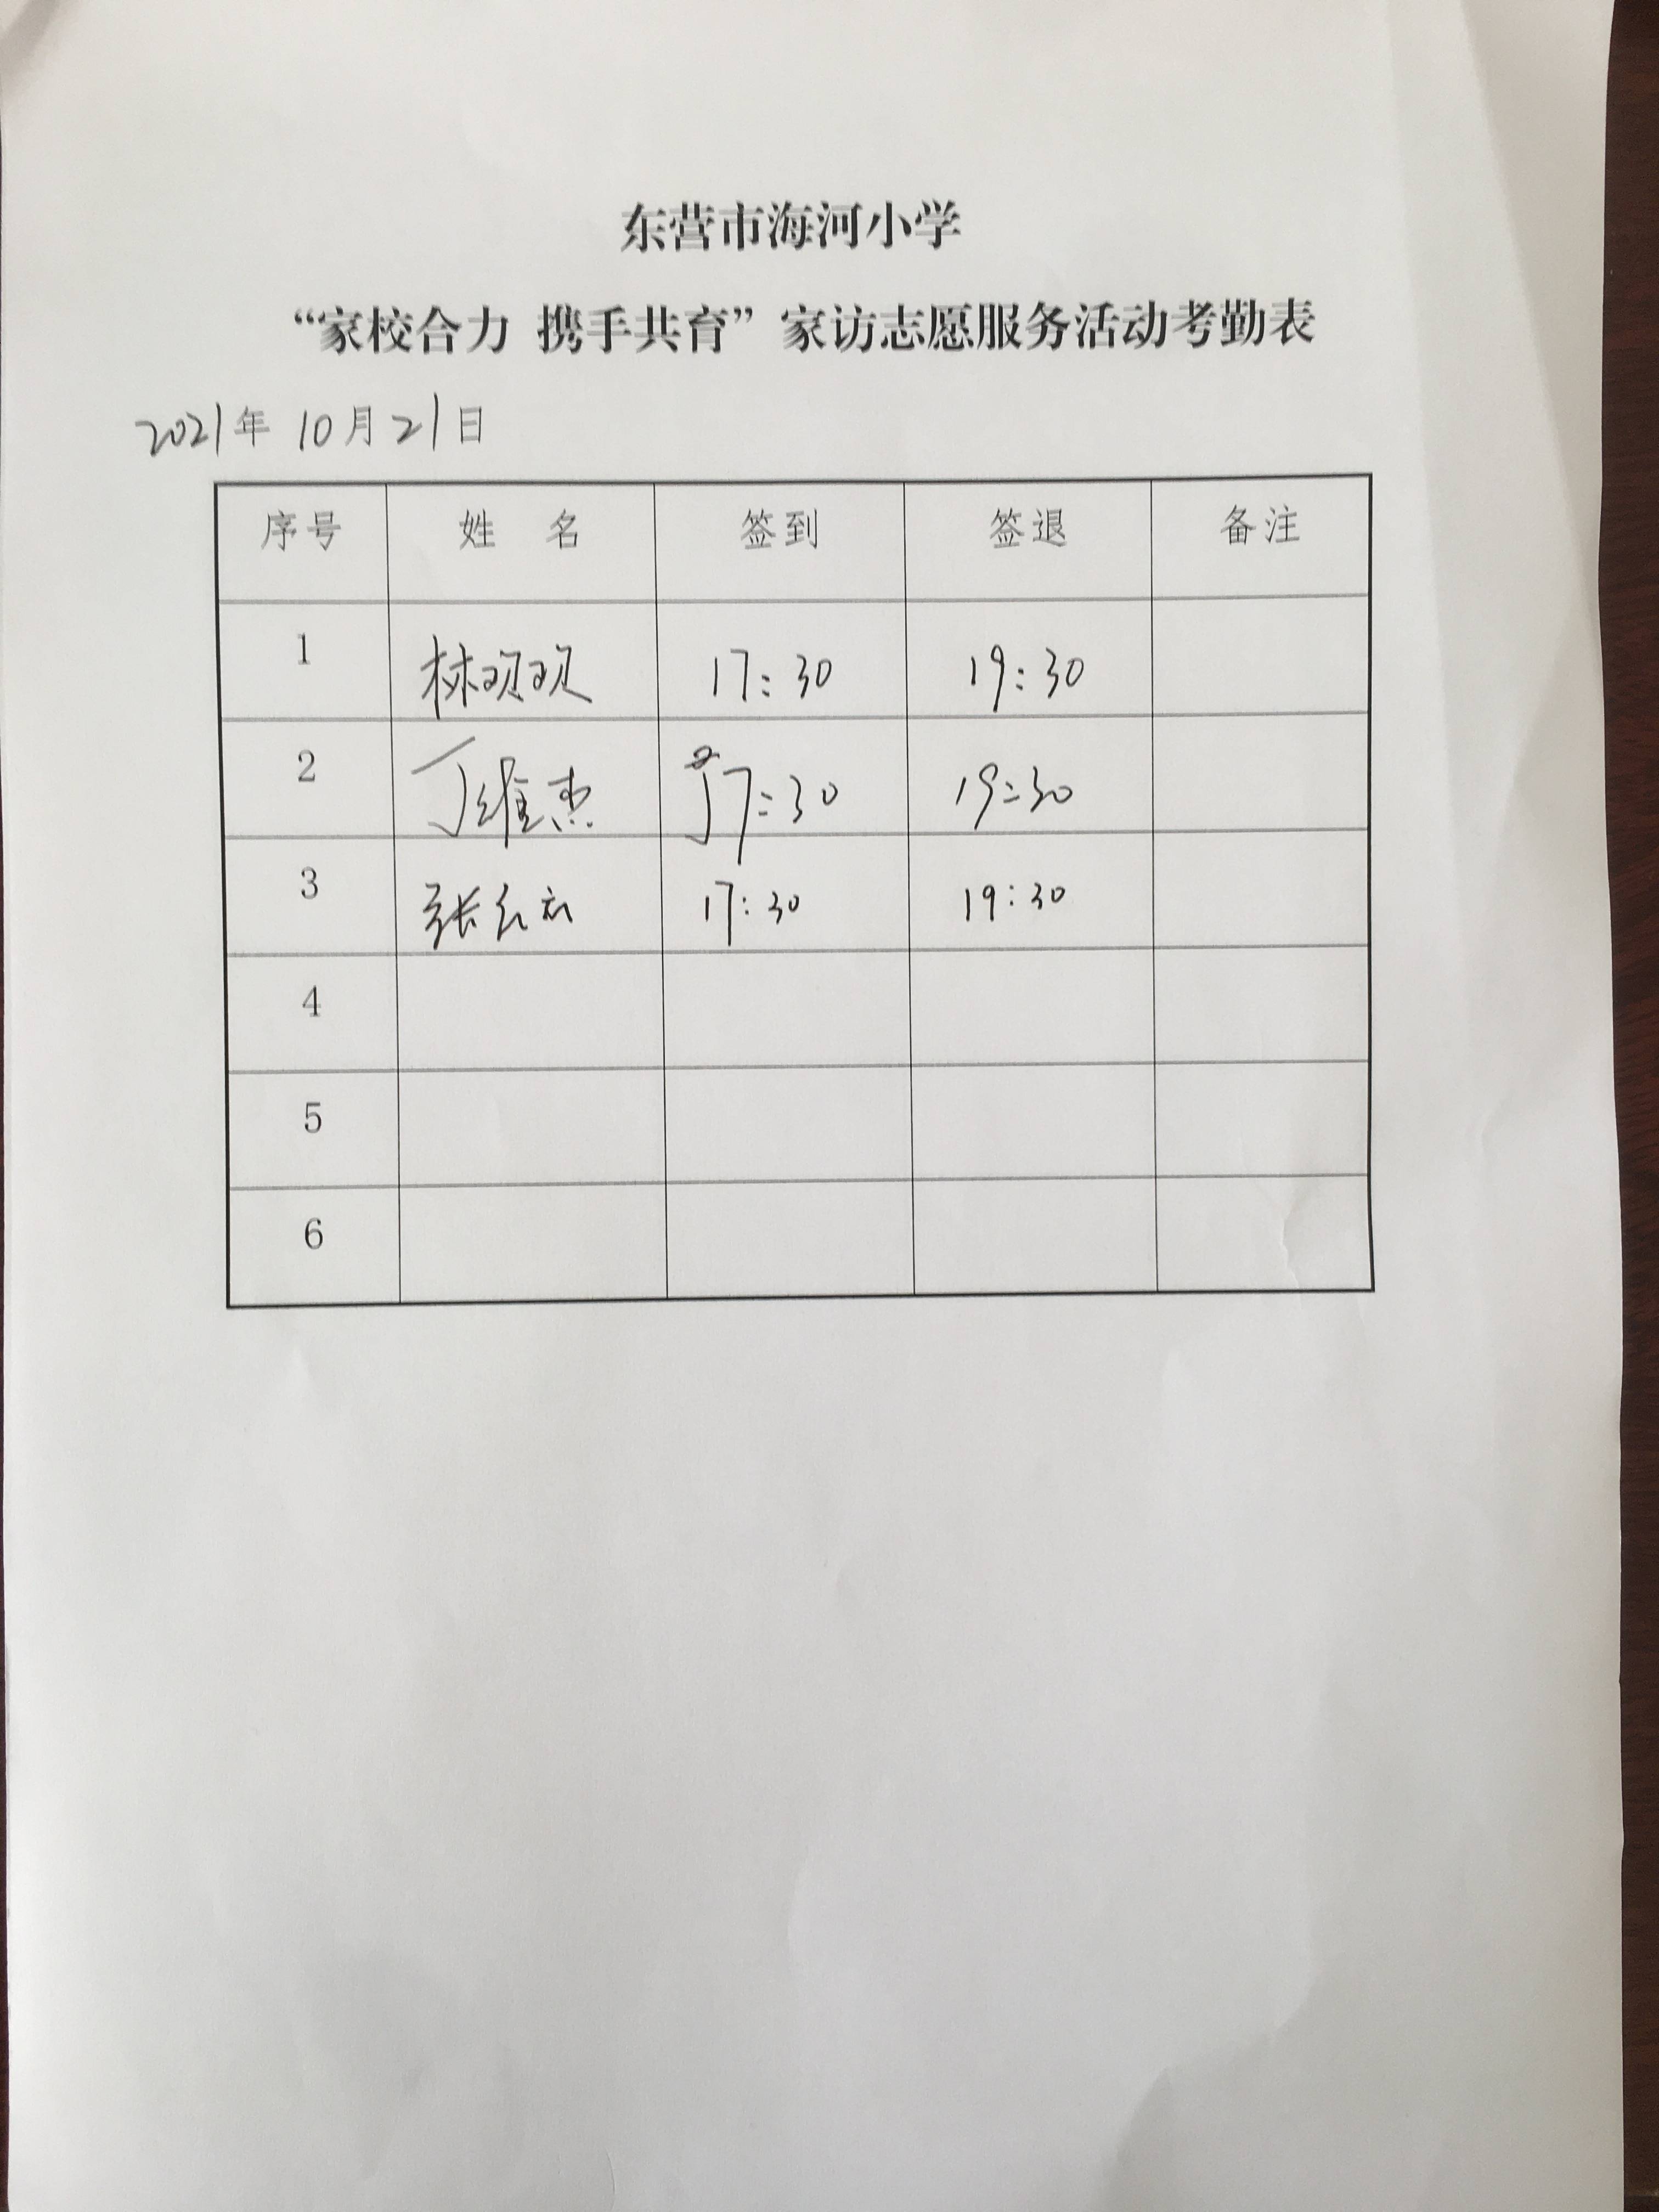 东营市海河小学
“家校合力 携手共育”家访志愿服务活动考勤表
2021年 10月21日
序号 姓 名 签到 签退 备注
1 林观观 17:30 19:30
2 丁维杰 17:30 19:30
3 张 17:30 19:30
4
5
6